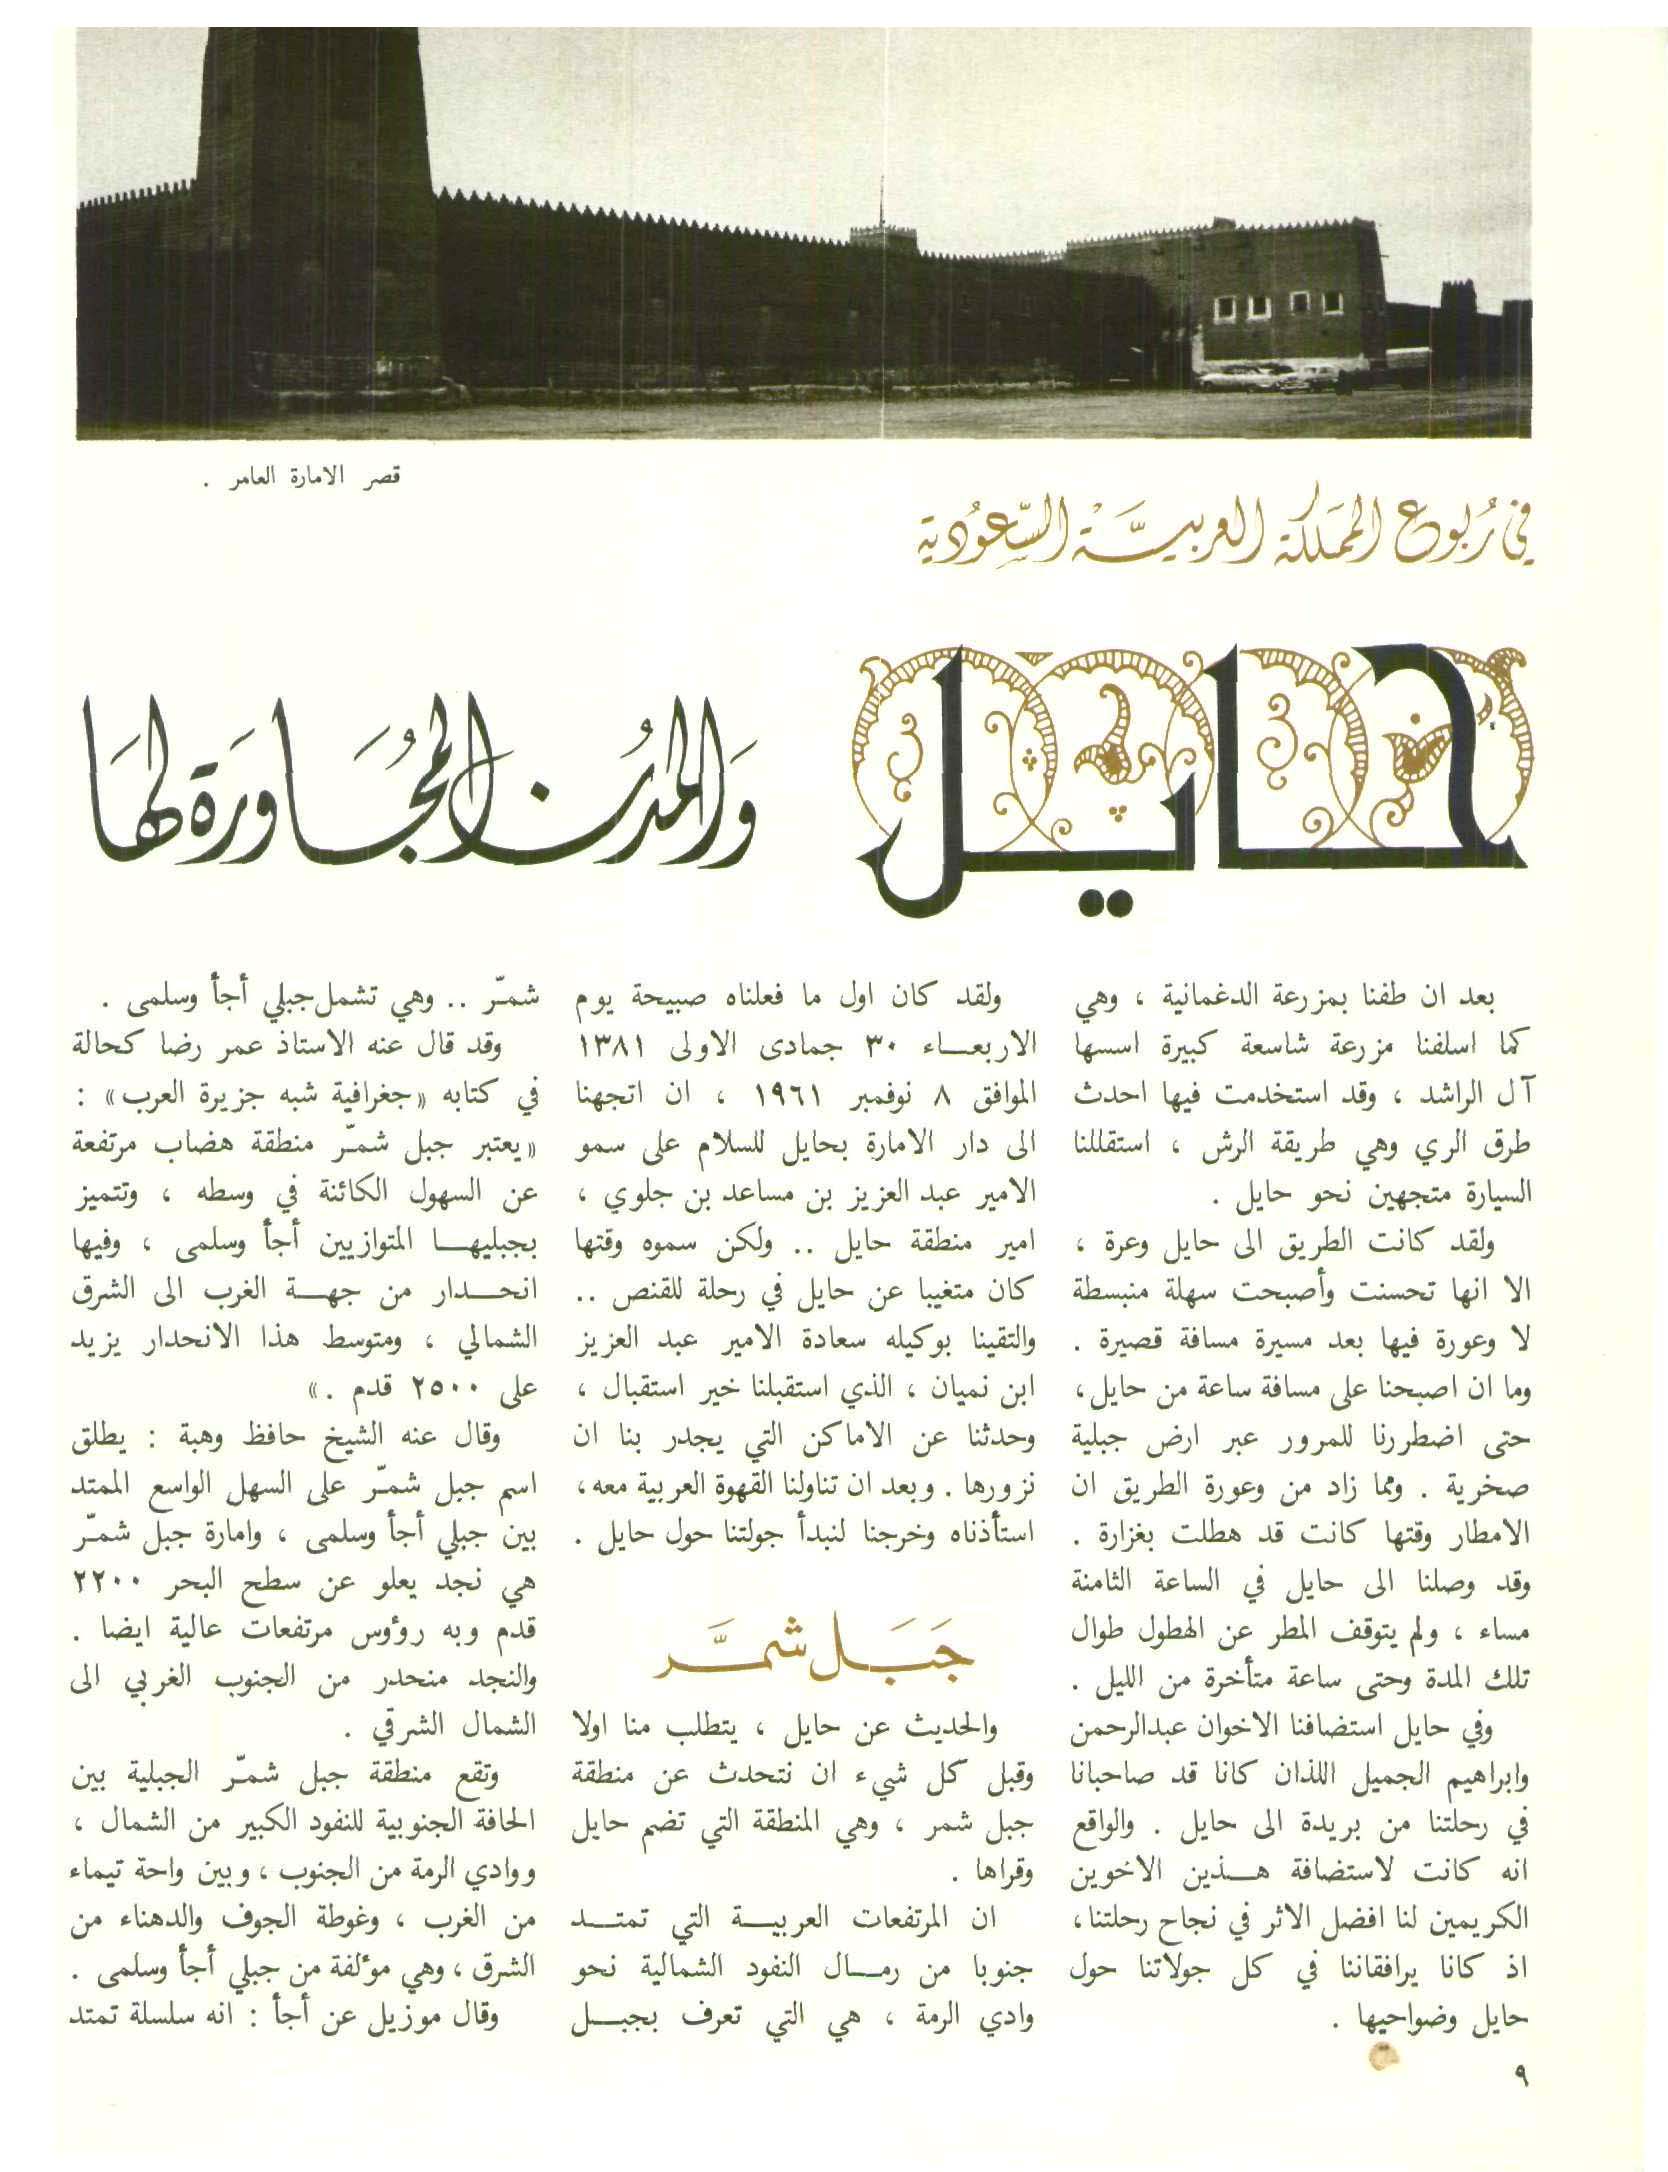 قصر الامارة العامر .
في رُبوع المملكة العربيَّة السّعُودية
حايل
وَالمدُن المجُاورَة لهَا
بعد ان طفنا بمزرعة الدغمانية ، وهي
كما اسلفنا مزرعة شاسعة كبيرة اسسها
آل الراشد ، وقد استخدمت فيها احدث
طرق الري وهي طريقة الرش ، استقللنا
السيارة متجهين نحو حايل .
ولقد كانت الطريق الى حايل وعرة ،
الا انها تحسنت وأصبحت سهلة منبسطة
لا وعورة فيها بعد مسيرة مسافة قصيرة .
وما ان اصبحنا على مسافة ساعة من حايل،
حتى اضطررنا للمرور عبر ارض جبلية
صخرية . ومما زاد من وعورة الطريق ان
الامطار وقتها كانت قد هطلت بغزارة .
وقد وصلنا الى حايل في الساعة الثامنة
مساء ، ولم يتوقف المطر عن الهطول طوال
تلك المدة وحتى ساعة متأخرة من الليل .
وفي حايل استضافنا الاخوان عبدالرحمن
وابراهيم الجميل اللذان كانا قد صاحبانا
في رحلتنا من بريدة الى حايل . والواقع
انه كانت لاستضافة هـذين الاخوين
الكريمين لنا افضل الاثر في نجاح رحلتنا،
اذ كانا يرافقاننا في كل جولاتنا حول
حايل وضواحيها .
ولقد كان اول ما فعلناه صبيحة يوم
الاربعـاء ٣٠ جمادى الاولى ١٣٨١
الموافق ٨ نوفمبر ١٩٦١ ، ان اتجهنا
الى دار الامارة بحايل للسلام على سمو
الامير عبد العزيز بن مساعد بن جلوي ،
امير منطقة حايل .. ولكن سموه وقتها
كان متغيبا عن حايل في رحلة للقنص ..
والتقينا بوكيله سعادة الامير عبد العزيز
ابن نميان ، الذي استقبلنا خير استقبال ،
وحدثنا عن الاماكن التي يجدر بنا ان
نزورها . وبعد ان تناولنا القهوة العربية معه،
استأذناه وخرجنا لنبدأ جولتنا حول حايل .
جَبَل شمَّر
والحديث عن حايل ، يتطلب منا اولا
وقبل كل شيء ان نتحدث عن منطقة
جبل شمر ، وهي المنطقة التي تضم حايل
وقراها .
ان المرتفعات العربيـة التي تمتـد
جنوبا من رمـال النفود الشمالية نحو
وادي الرمة ، هي التي تعرف بجبـل
شمّر .. وهي تشمل جبلي أجأ وسلمى .
وقد قال عنه الاستاذ عمر رضا كحالة
في كتابه «جغرافية شبه جزيرة العرب» :
«يعتبر جبل شمّر منطقة هضاب مرتفعة
عن السهول الكائنة في وسطه ، وتتميز
بجبليهـا المتوازيين أجأ وسلمى ، وفيها
انحـدار من جهـة الغرب الى الشرق
الشمالي ، ومتوسط هذا الانحدار يزيد
على ٢٥٠٠ قدم .»
وقال عنه الشيخ حافظ وهبة : يطلق
اسم جبل شمّر على السهل الواسع الممتد
بين جبلي أجأ وسلمى ، وامارة جبل شمّر
هي نجد يعلو عن سطح البحر ٢٢٠٠
قدم وبه رؤوس مرتفعات عالية ايضا .
والنجد منحدر من الجنوب الغربي الى
الشمال الشرقي .
وتقع منطقة جبل شمّر الجبلية بين
الحافة الجنوبية للنفود الكبير من الشمال ،
ووادي الرمة من الجنوب ، وبين واحة تيماء
من الغرب ، وغوطة الجوف والدهناء من
الشرق ، وهي مؤلفة من جبلي أجأ وسلمى .
وقال موزيل عن أجأ : انه سلسلة تمتد
٩